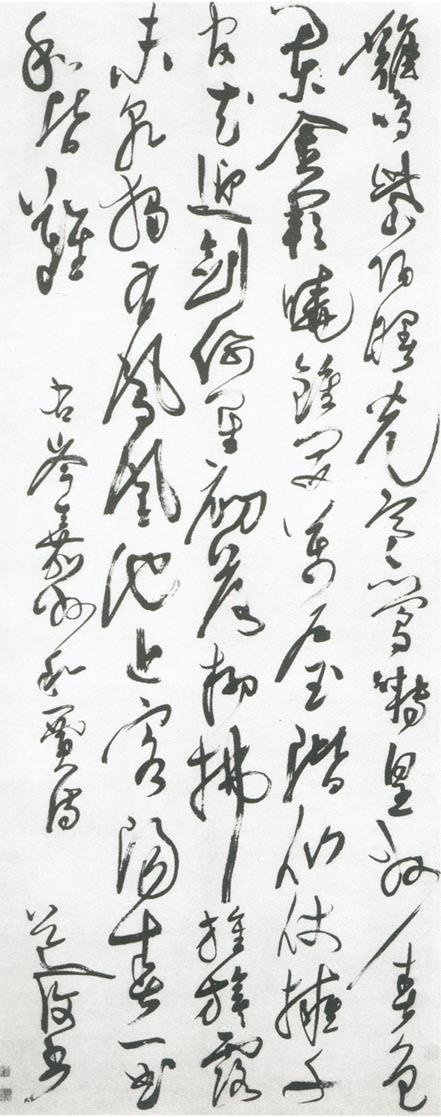 雞鳴紫陌曙光寒鶯囀皇州春色
闌金闕曉鐘開萬戶玉階仙仗擁千
官花迎劍佩星初落柳拂旌旗露
未乾獨有鳳凰池上客陽春一曲
和皆難 右岑嘉州和賈詩 道復書